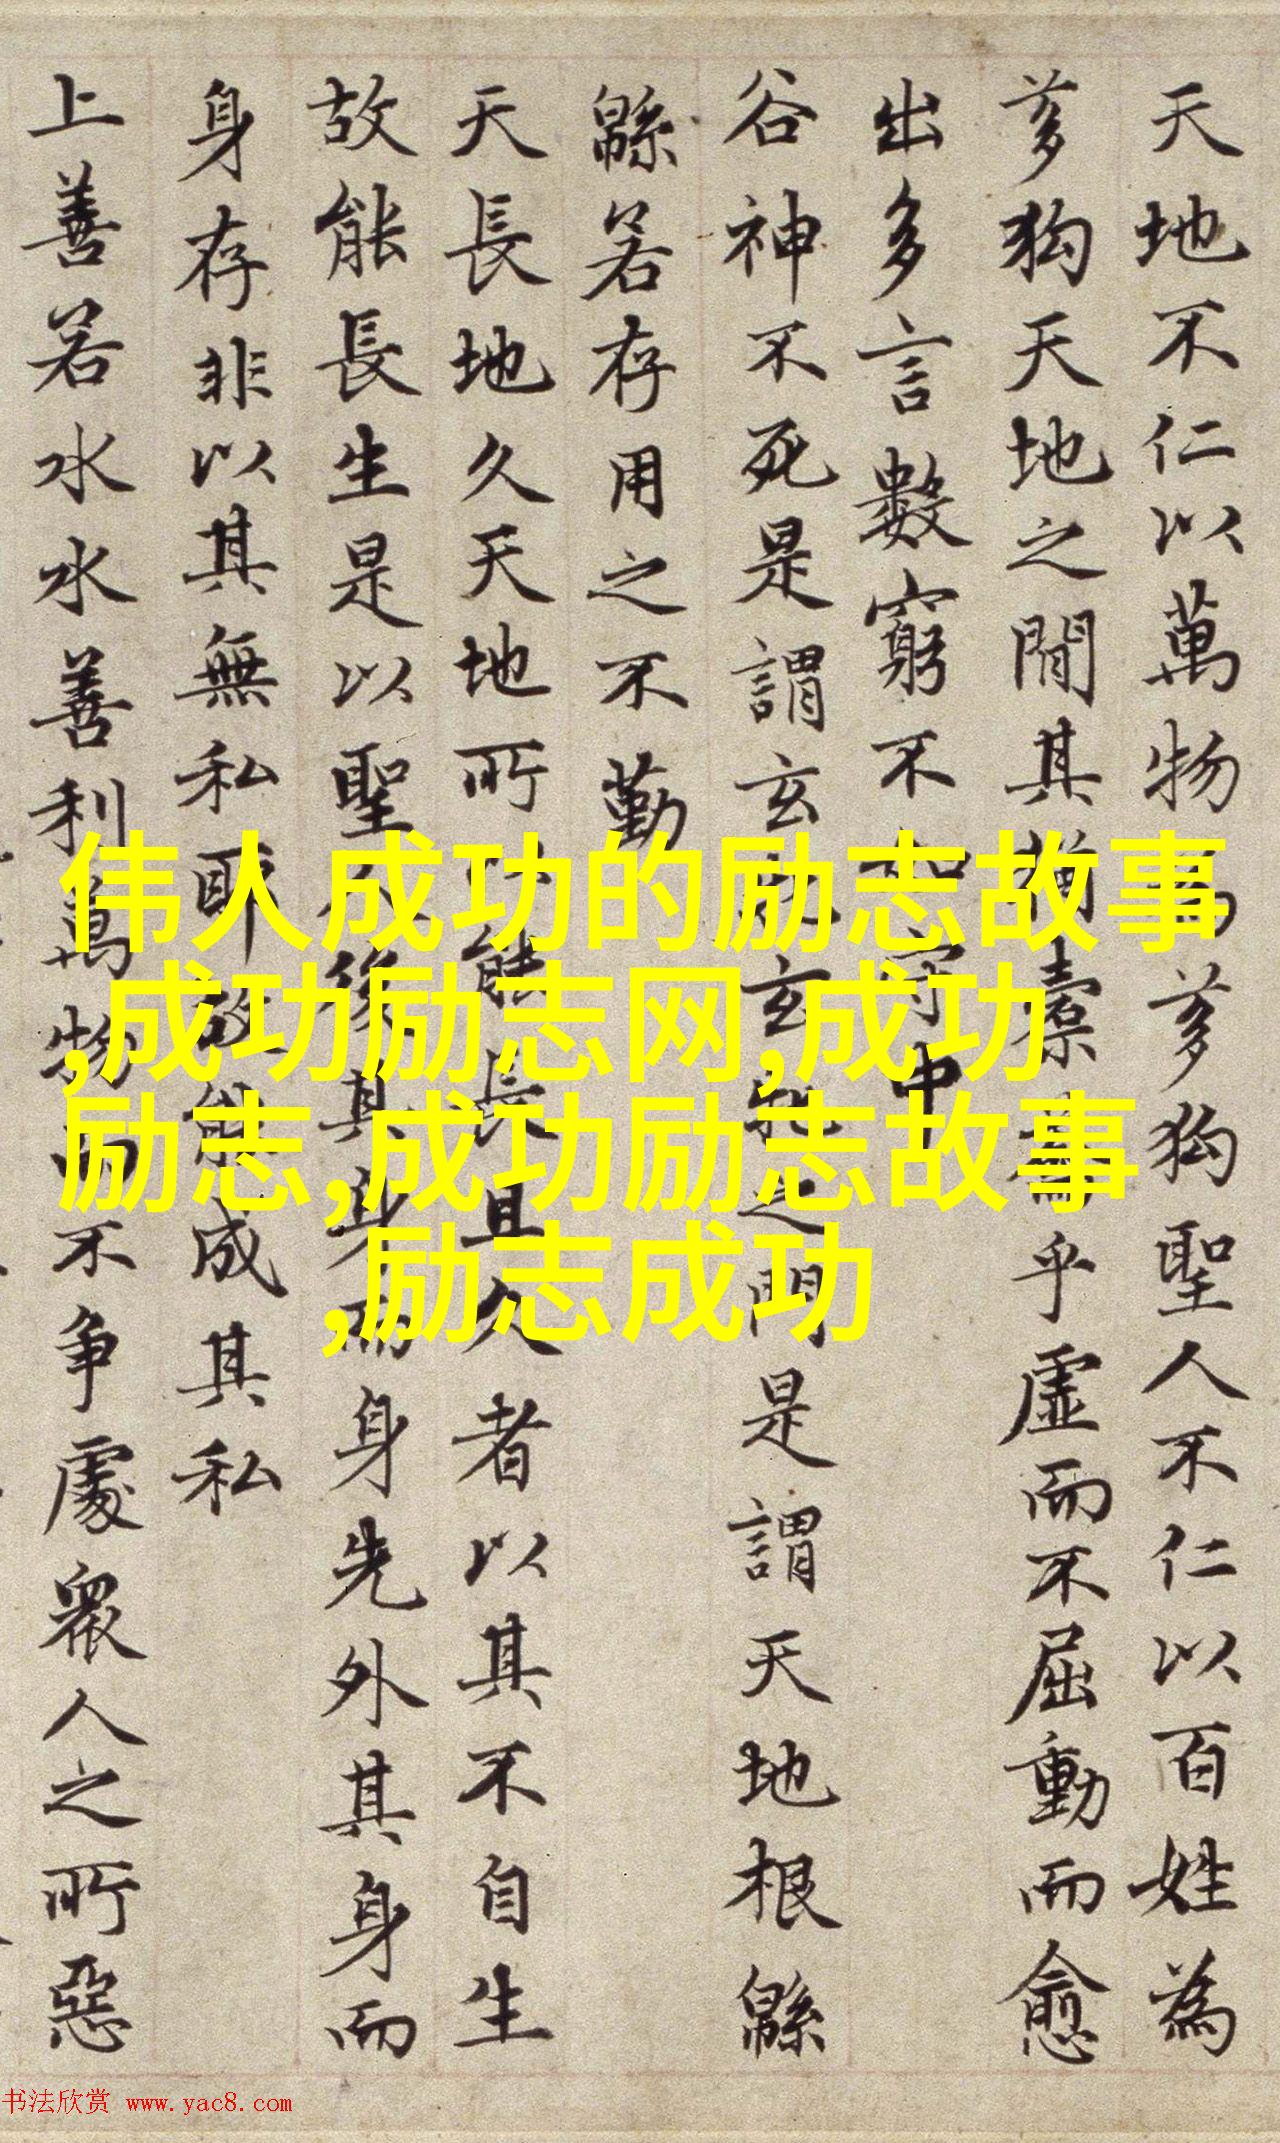 天地不仁以萬物為芻狗聖人不仁以百姓為
芻狗天地之間其猶橐籥乎虛而不屈動而愈
出多言數窮不如守中
谷神不死是謂玄牝玄牝之門是謂天地根緜
緜若存用之不勤
天長地久天地所以能長且久者以其不自生
故能長生是以聖人後其身而身先外其身而
身存非以其無私耶故能成其私
上善若水水善利萬物而不爭處衆人之所惡
伟人成功的励志故事
,成功励志网,成功
励志,成功励志故事
,励志成功
书法欣赏 www.yac8.com